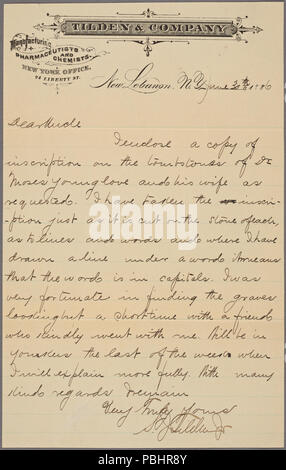 TILDEN & COMPANY
Manufacturing
PHARMACEUTISTS
AND CHEMISTS.
NEW YORK OFFICE,
24 LIBERTY ST.
New Lebanon, N.Y. June 30th 1886
Dear Uncle
I enclose a copy of
inscription on the tombstones of Dr
Moses Younglove and his wife as
requested. I have taken the inscrip-
-tion just as it is cut on the stone of each,
as to lines and words and where I have
drawn a line under a word it means
that the word is in capitals. I was
very fortunate in finding the graves
looking but a short time with a friend
who kindly went with me. Will be in
Yonkers the last of the week when
I will explain more fully. With many
kind regards, I remain
Very Truly Yours
alamy
Image ID: PBHR8Y
www.alamy.com